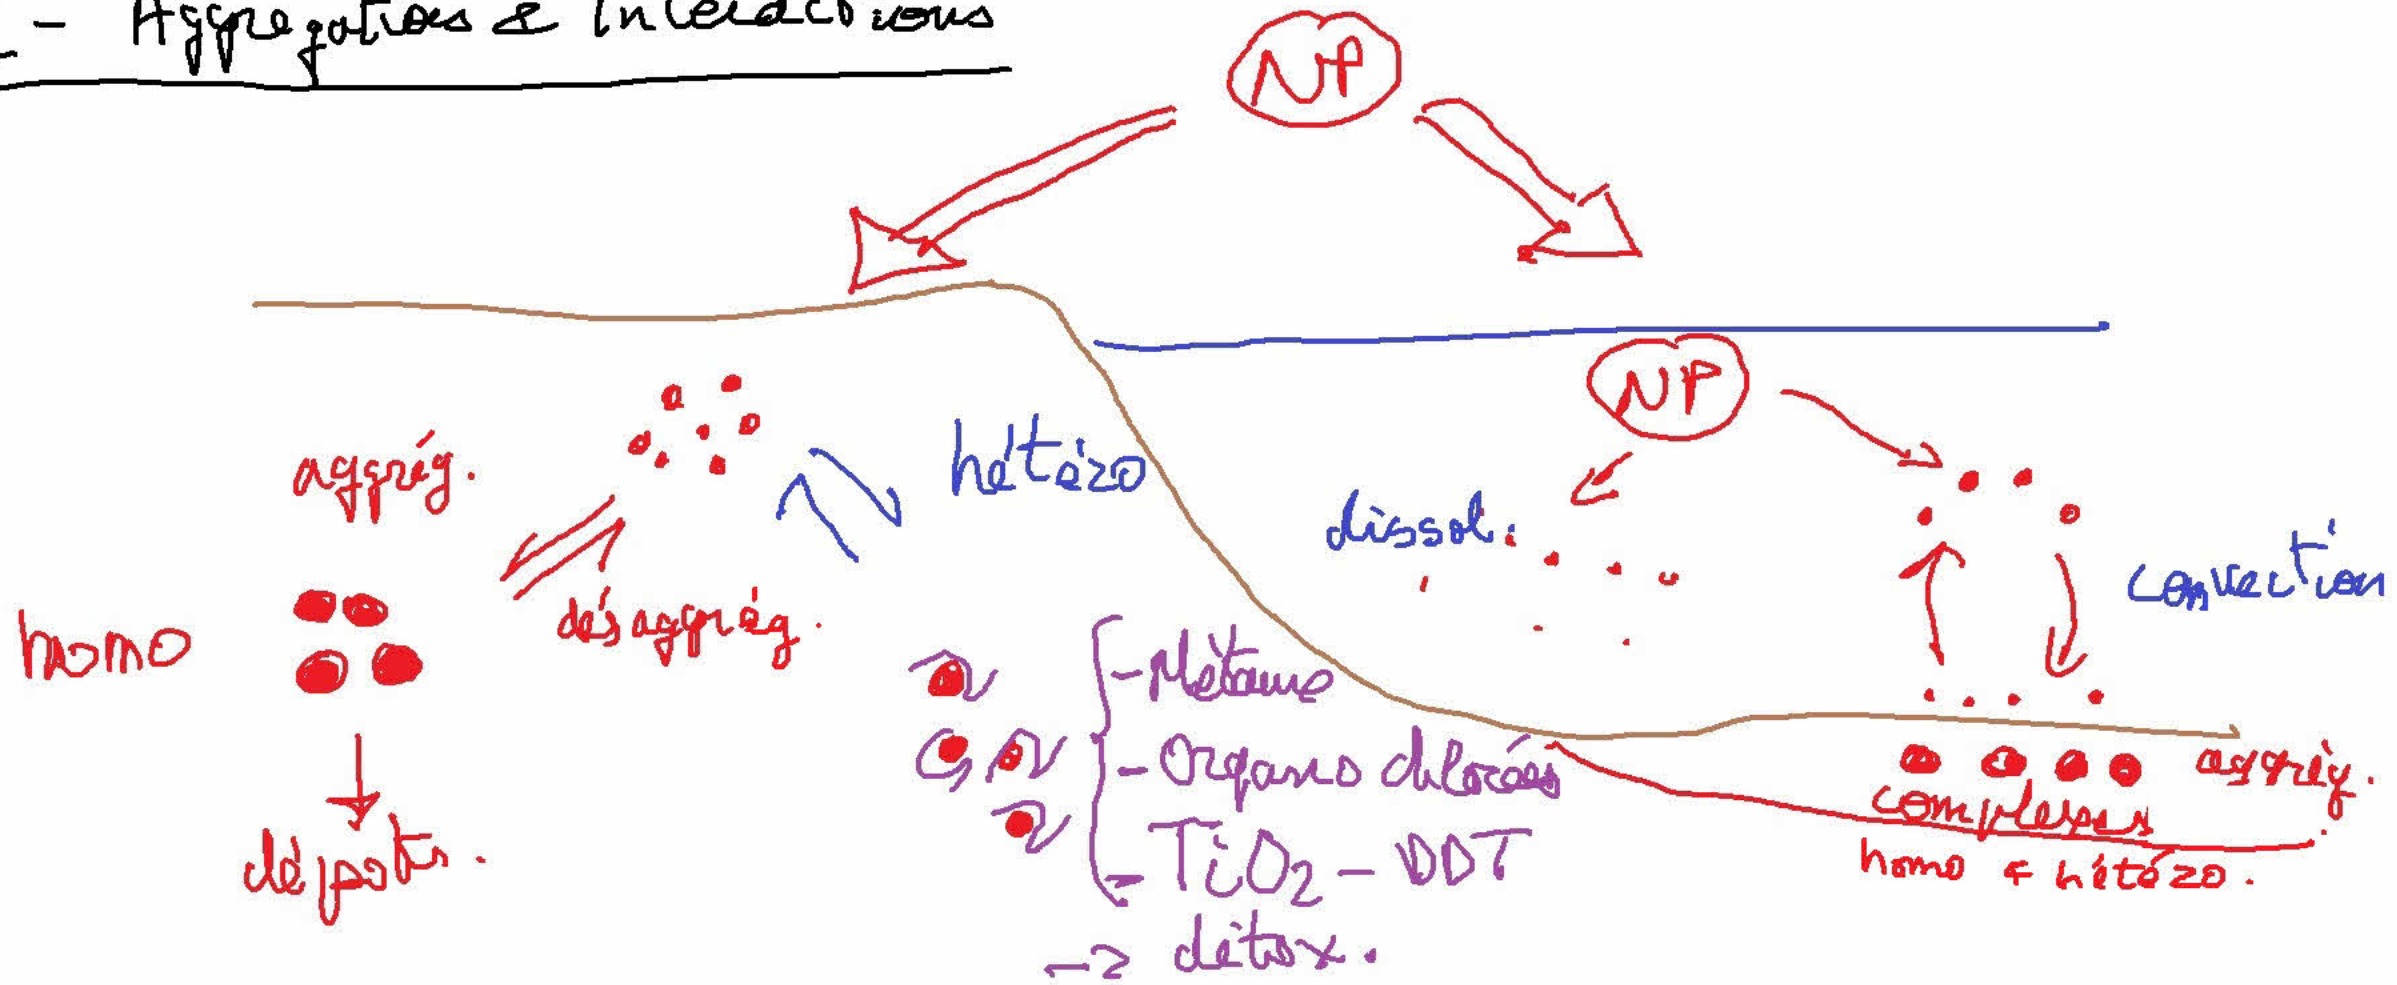 - Aggregations & Interactions
NP
NP
aggrég.
hétéro
dissol.
convection
homo
désaggrég.
- Métaux
- Organo chlorées
- TiO2 - DDT
-> détox.
dépots.
aggrég.
complexes
homo & hétéro.